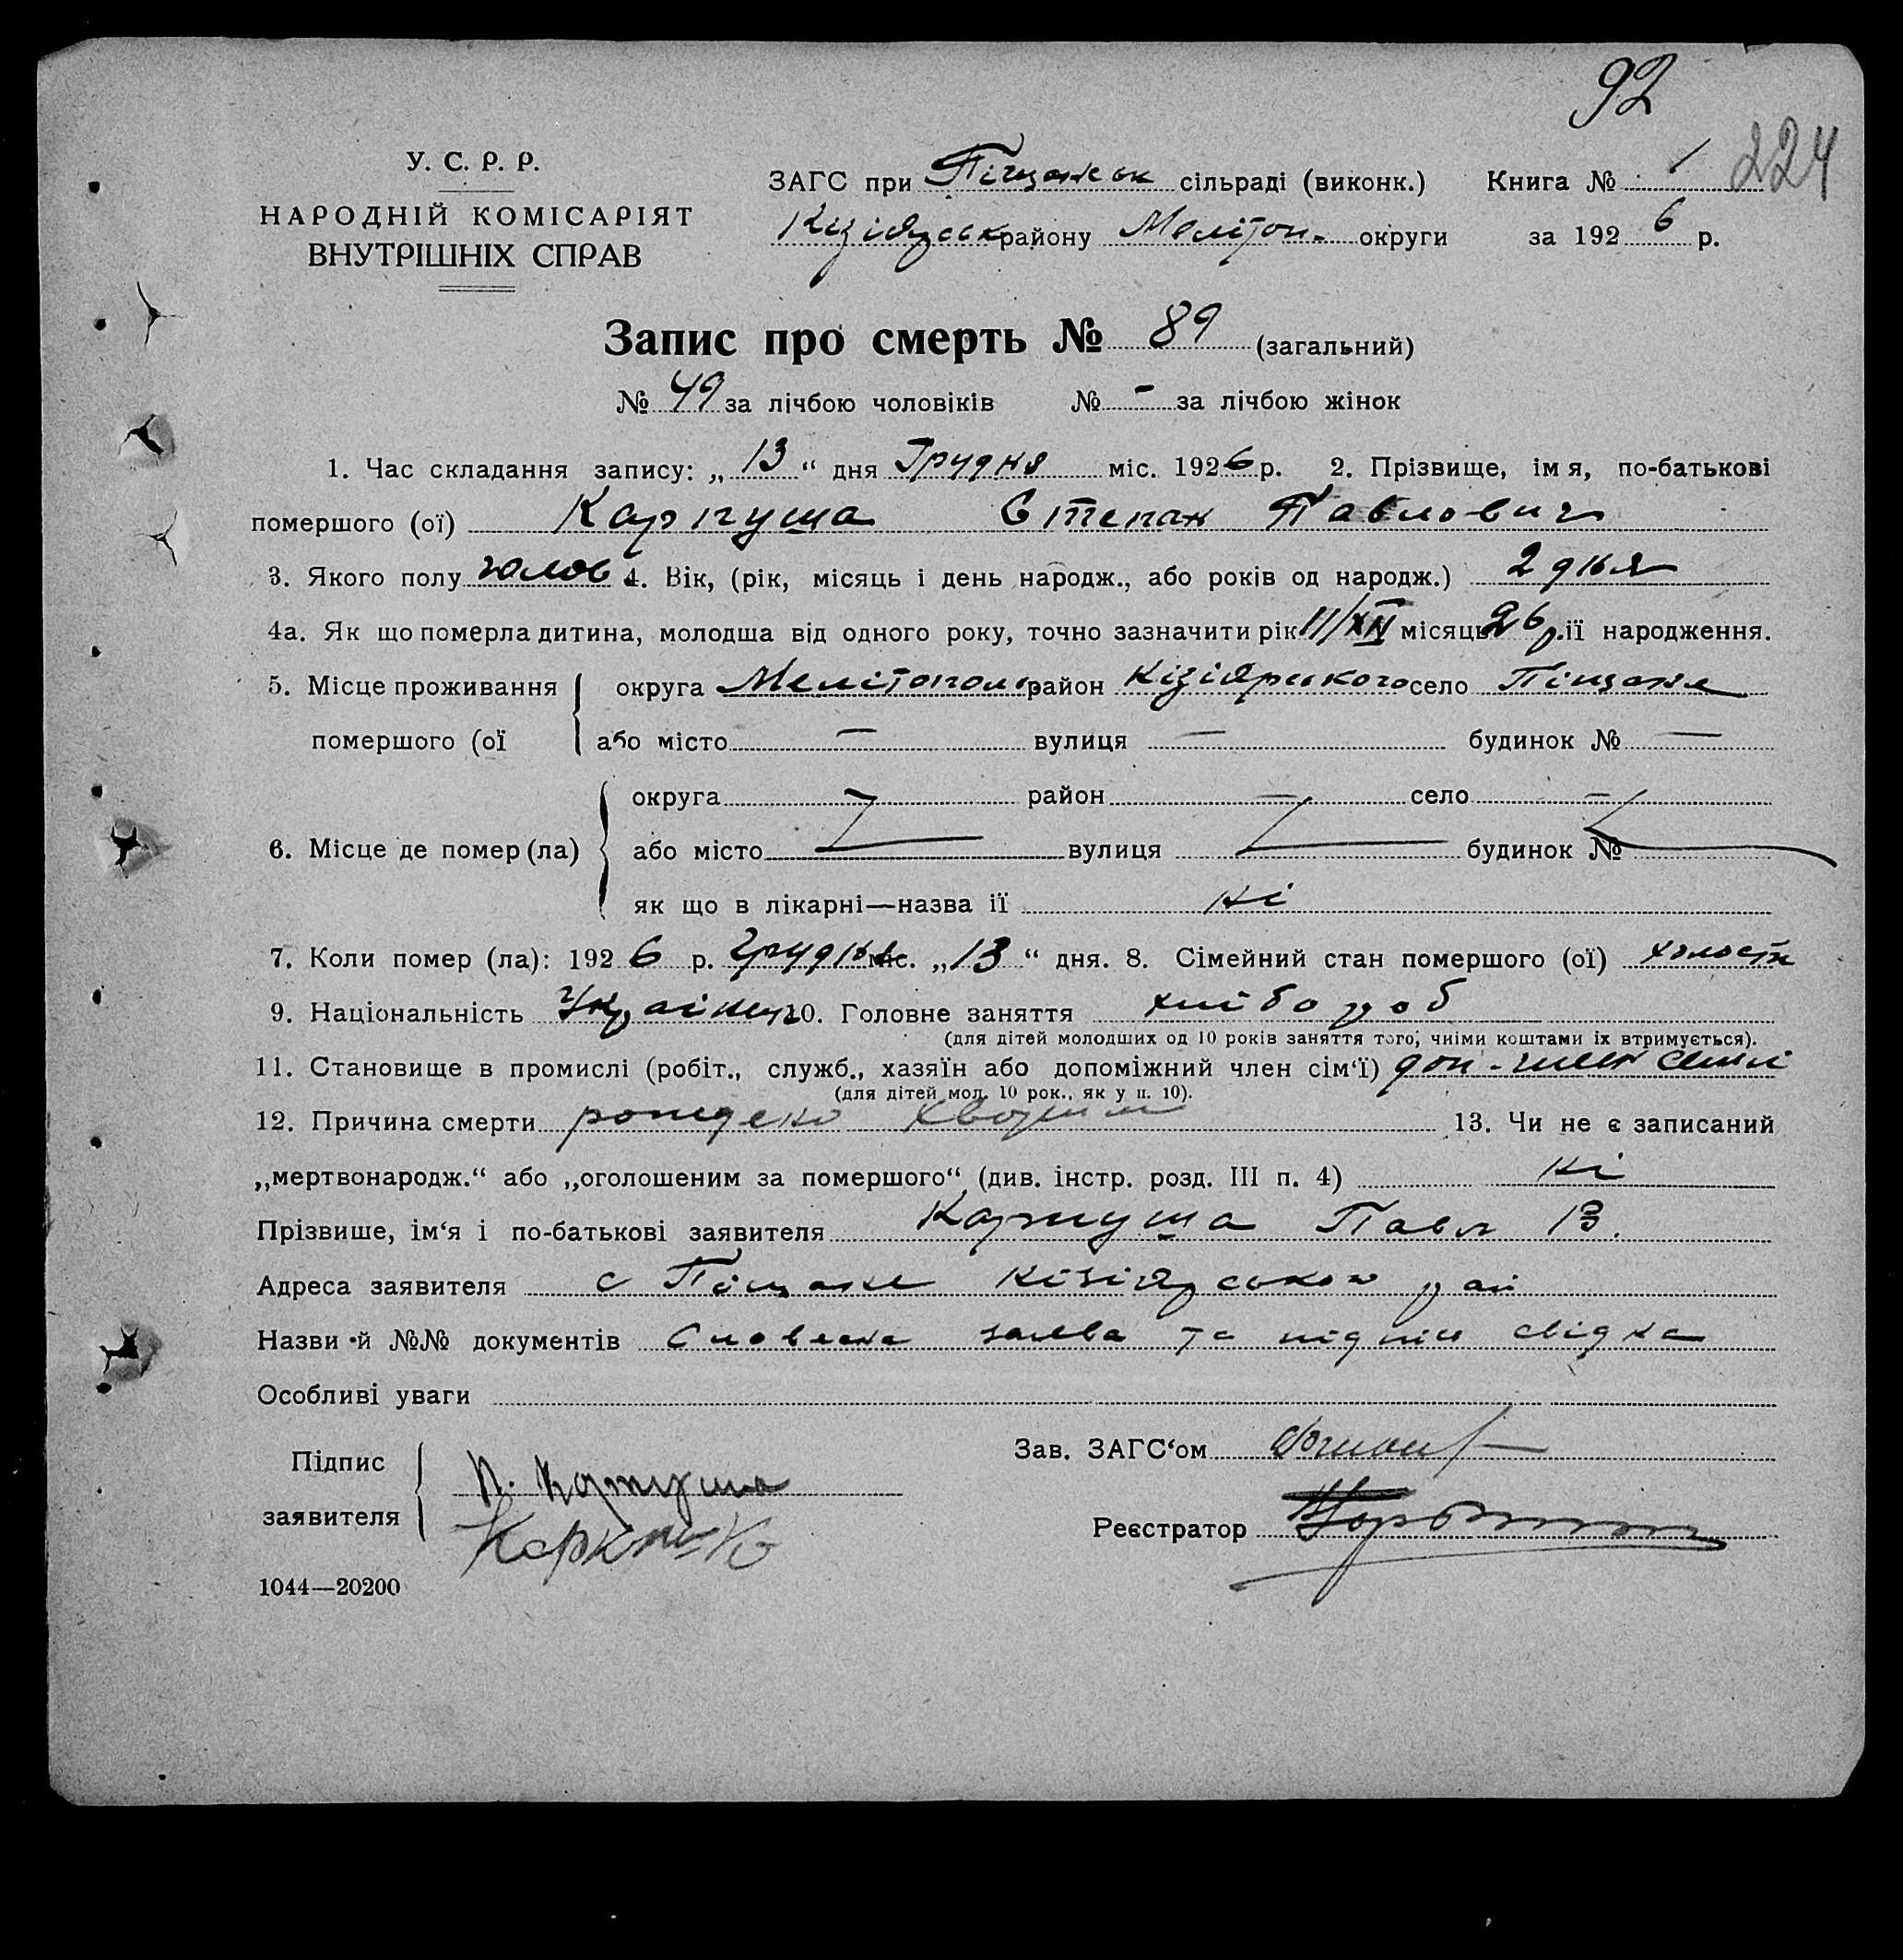 92
224
У. С. Р. Р.
НАРОДНІЙ КОМІСАРІЯТ
ВНУТРІШНІХ СПРАВ
ЗАГС при Піщанськ сільраді (виконк.) Книга № 1
Кізіярськ району Мелітоп. округи за 1926 р.
Запис про смерть № 89 (загальний)
№ 49 за лічбою чоловіків № - за лічбою жінок
1. Час складання запису: „13“ дня Грудня міс. 1926 р. 2. Прізвище, імя, по-батькові
помершого (ої) Карпуша Степан Павлович
3. Якого полу чолов 4. Вік, (рік, місяць і день народж., або років од народж.) 2 дня
4а. Як що померла дитина, молодша від одного року, точно зазначити рік 11/XII місяць 26 р. її народження.
5. Місце проживання округа Мелітополь район Кізіярського село Піщане
помершого (ої або місто — вулиця — будинок № —
округа — район — село —
6. Місце де помер (ла) або місто вулиця будинок №
як що в лікарні—назва її ні
7. Коли помер (ла): 1926 р. Грудня міс. „13“ дня. 8. Сімейний стан помершого (ої) холост
9. Національність Українец 10. Головне заняття хлібороб
(для дітей молодших од 10 років заняття того, чиїми коштами їх втримується).
11. Становище в промислі (робіт., служб., хазяїн або допоміжний член сім‘ї) доп. член семї
(для дітей мол. 10 рок., як у п. 10).
12. Причина смерти 13. Чи не є записаний
„мертвонародж.“ або „оголошеним за помершого“ (див. інстр. розд. III п. 4) ні
Прізвише, ім‘я і по-батькові заявителя Карпуша Павл В.
Адреса заявителя с Піщане Кізіярського рай
Назви й №№ документів Словесна заява та підпис свідка
Особливі уваги
Підпис
заявителя
П. Карпуша
Зав. ЗАГС‘ом
Реєстратор
1044—20200